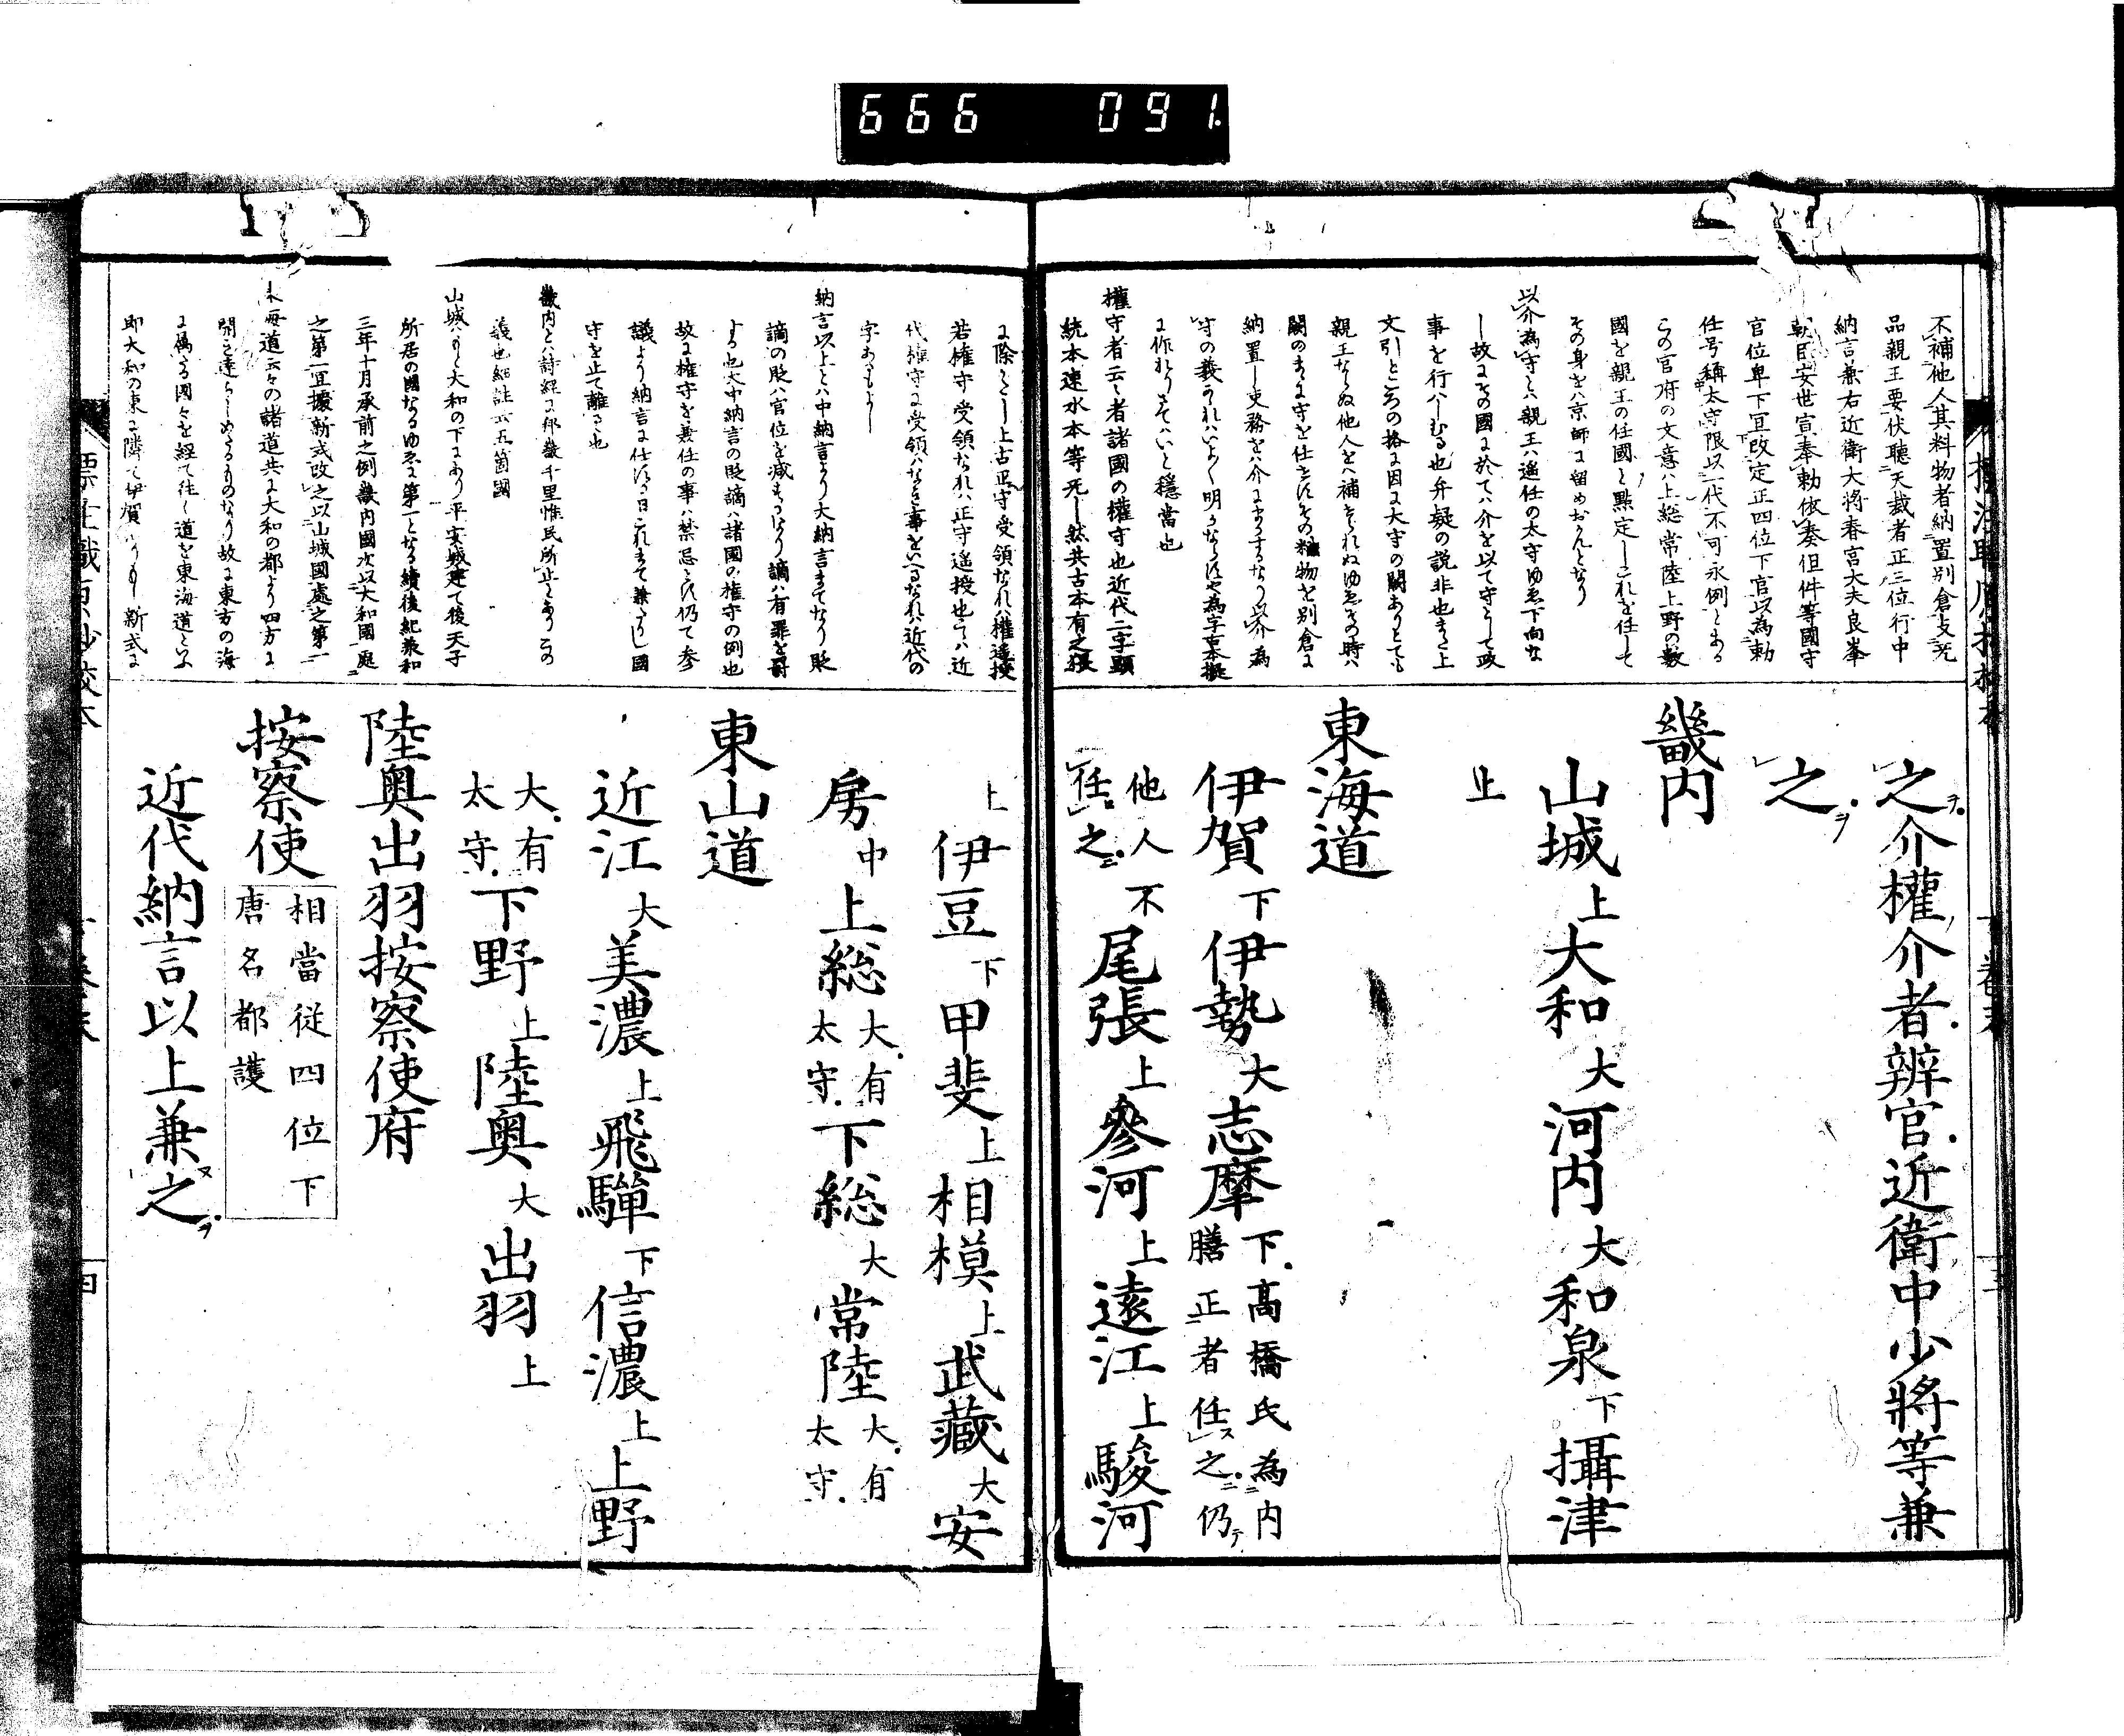 666 091.
不補他人其料物者納置別倉支无
品親王要伏聽天裁者正三位行中
納言兼右近衛大将春宮大夫良峯
朝臣安世宣奉勅依奏但件等國守
官位卑下宜改定正四位下官以為勅
任号稱太守限以一代不可永例とある
らの官府の文意ハ上総常陸上野の數
國を親王の任國と點定しこれを任して
その身をハ京師に留めおかんとなり
以介為守とハ親王ハ遙任の太守ゆゑ下向な
し故にその國に於てハ介を以て守として政
事を行ハしむる也弁疑の説非也また上
文引ところの格に因に太守の闕ありとても
親王ならぬ他人をハ補せられぬゆゑその時ハ
闕のまゝに守を任せすその料物を別倉に
納置し吏務をハ介にまかするなり以介為
守の義これハいよ〱明らならすや為字古本擬
に作れりさてハいと穩當也
權守者云々者諸國の權守也近代二字顕
統本速水本等无し然共古本有之
之介權介者辨官近衛中少將等兼
之
畿内
山城上大和大河内大和泉下攝津
上
東海道
伊賀下伊勢大志摩下高橋氏為内膳正者任之仍
他人不任之尾張上參河上遠江上駿河
下卷末
三
に除くへし上古正守受領なれハ權遙授
若權守受領なれハ正守遙授也とハ近
代權守に受領ハなき事をいへるなれハ近代の
字あるもよし
納言以上とハ中納言より大納言まてなり貶
謫の貶ハ官位を減するなり謫ハ有罪を罸
する也大中納言の貶謫ハ諸國の權守の例也
故に權守を兼任の事ハ禁忌とす仍て参
議より納言に任する日これまて兼たりし國
守を止て離る也
畿内とハ詩經に邦畿千里惟民所止とあり この
義也細註云五箇國
山城ハもと大和の下にあり平安城建て後天子
所居の國なるゆゑに第一となる續後紀兼和
三年十月承前之例畿内國次以大和國處
之第一宜據新式改之以山城國處之第一
東海道云々の諸道共に大和の都より四方に
開き達らしめたるものなり故に東方の海
に属る國々を経て往く道を東海道といふ
即大和の東に隣て伊賀 新式に
上伊豆下甲斐上相模上武藏大安
房中上総大有太守下総大常陸大有太守
東山道
近江大美濃上飛驒下信濃上上野
大有太守下野上陸奥大出羽上
陸奥出羽按察使府
按察使相當從四位下唐名都護
近代納言以上兼之
標注職原抄校本
四